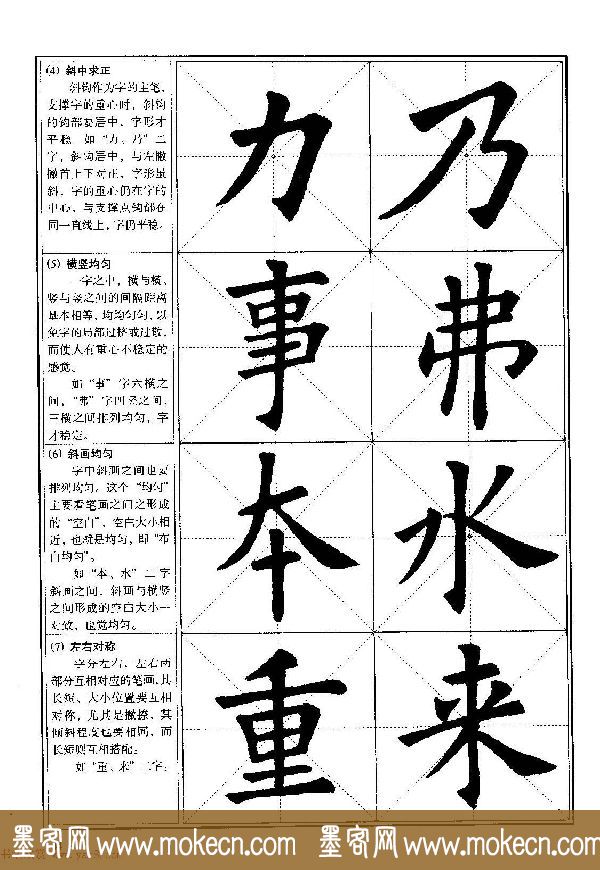 (4) 斜中求正
斜钩作为字的主笔,
支撑字的重心时, 斜钩
的钩部要居中, 字形才
平稳 如“力、乃”二
字, 斜钩居中, 与左撇
撇首上下对正, 字形虽
斜, 字的重心仍在字的
中心, 与支撑点钩都在
同一直线上, 字仍平稳。
力 乃
(5) 横竖均匀
一字之中, 横与横、
竖与竖之间的间隔距离
基本相等, 均均匀匀, 以
免字的局部过挤或过散,
而使人有重心不稳定的
感觉。
如“事”字六横之
间, “弗”字四竖之间、
三横之间排列均匀, 字
才稳定。
事 弗
(6) 斜画均匀
字中斜画之间也要
排列均匀, 这个“均匀”
主要看笔画之间之形成
的“空白”, 空白大小相
近, 也就是均匀, 即“布
白均匀”。
如“本、水”二字
斜画之间, 斜画与横竖
之间形成的空白大小一
对效, 也觉均匀。
本 水
(7) 左右对称
字分左右, 左右两
部分互相对应的笔画, 其
长短、大小位置要互相
对称, 尤其是撇捺, 其
倾斜程度也要相同, 而
长短则互相搭配;
如“重、来”二字,
重 来
墨客网 www.mokecn.com 墨客网 www.mokecn.com